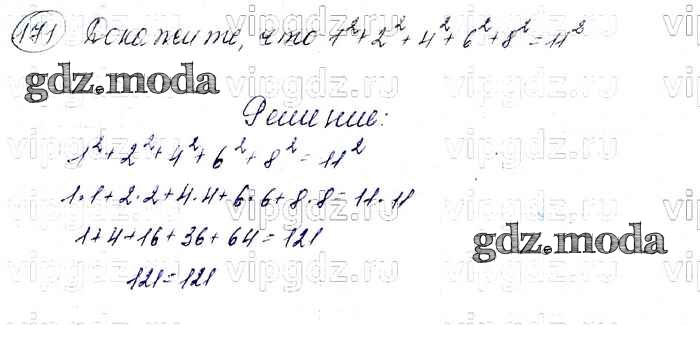 171 Докажите, что 1²+2²+4²+6²+8²=11²
gdz.moda
Решение:
1²+2²+4²+6²+8²=11²
1·1+2·2+4·4+6·6+8·8=11·11
1+4+16+36+64=121
gdz.moda
121=121
vipgdz.ru